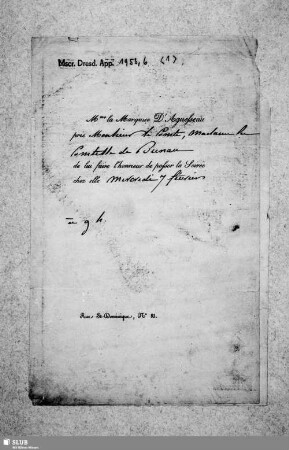 Mscr. Dresd. App. 1984, 6 (1)
Mme la Marquise D'Aguesseau
prie Monsieur le Comte, Madame la
Comtesse de Bunau
de lui faire l'honneur de passer la Soirée
chez elle mercredi 7 février
à 9 h.
Rue St Dominique, No 81.
SLUB
Wir führen Wissen.